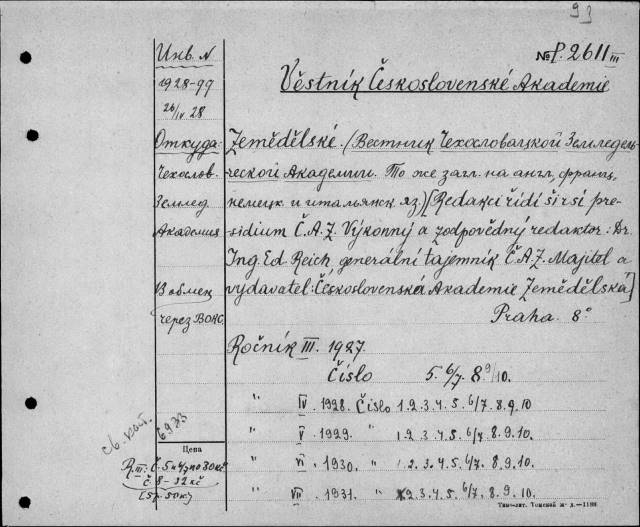 93
Инв. N
№ P. 2611 III
1928-99
26/IV 28
Věstník Československé Akademie
Откуда:
Zemědělské. (Вестник Чехословацкой Земледель-
Чехослов.
ческой Академии. То же загл. на англ., франц.,
Землед.
немецк. и итальянск. яз.) [Redakci řídí širší pre-
Академия
sidium Č.A.Z. Výkonný a zodpovědný redaktor: Dr.
Ing. Ed. Reich, generální tajemník Č.A.Z. Majitel a
В обмен
vydavatel: Československá Akademie Zemědělská]
через ВОКС.
Praha. 8°
Ročník III. 1927.
Číslo 5. 6/7. 8 9/10.
" IV. 1928. Číslo 1. 2. 3. 4. 5. 6/7. 8. 9. 10
" V. 1929. " 1. 2. 3. 4. 5. 6/7. 8. 9. 10.
" VI. 1930. " 1. 2. 3. 4. 5. 6/7. 8. 9. 10.
" VII. 1931. " 2. 3. 4. 5. 6/7. 8. 9. 10.
св. кат.
6933
Цена
R. III: Č. 5 и 4/7 по 30 kč
č. 8 - 32 kč
Тип.-лит. Томской ж. д.—1188